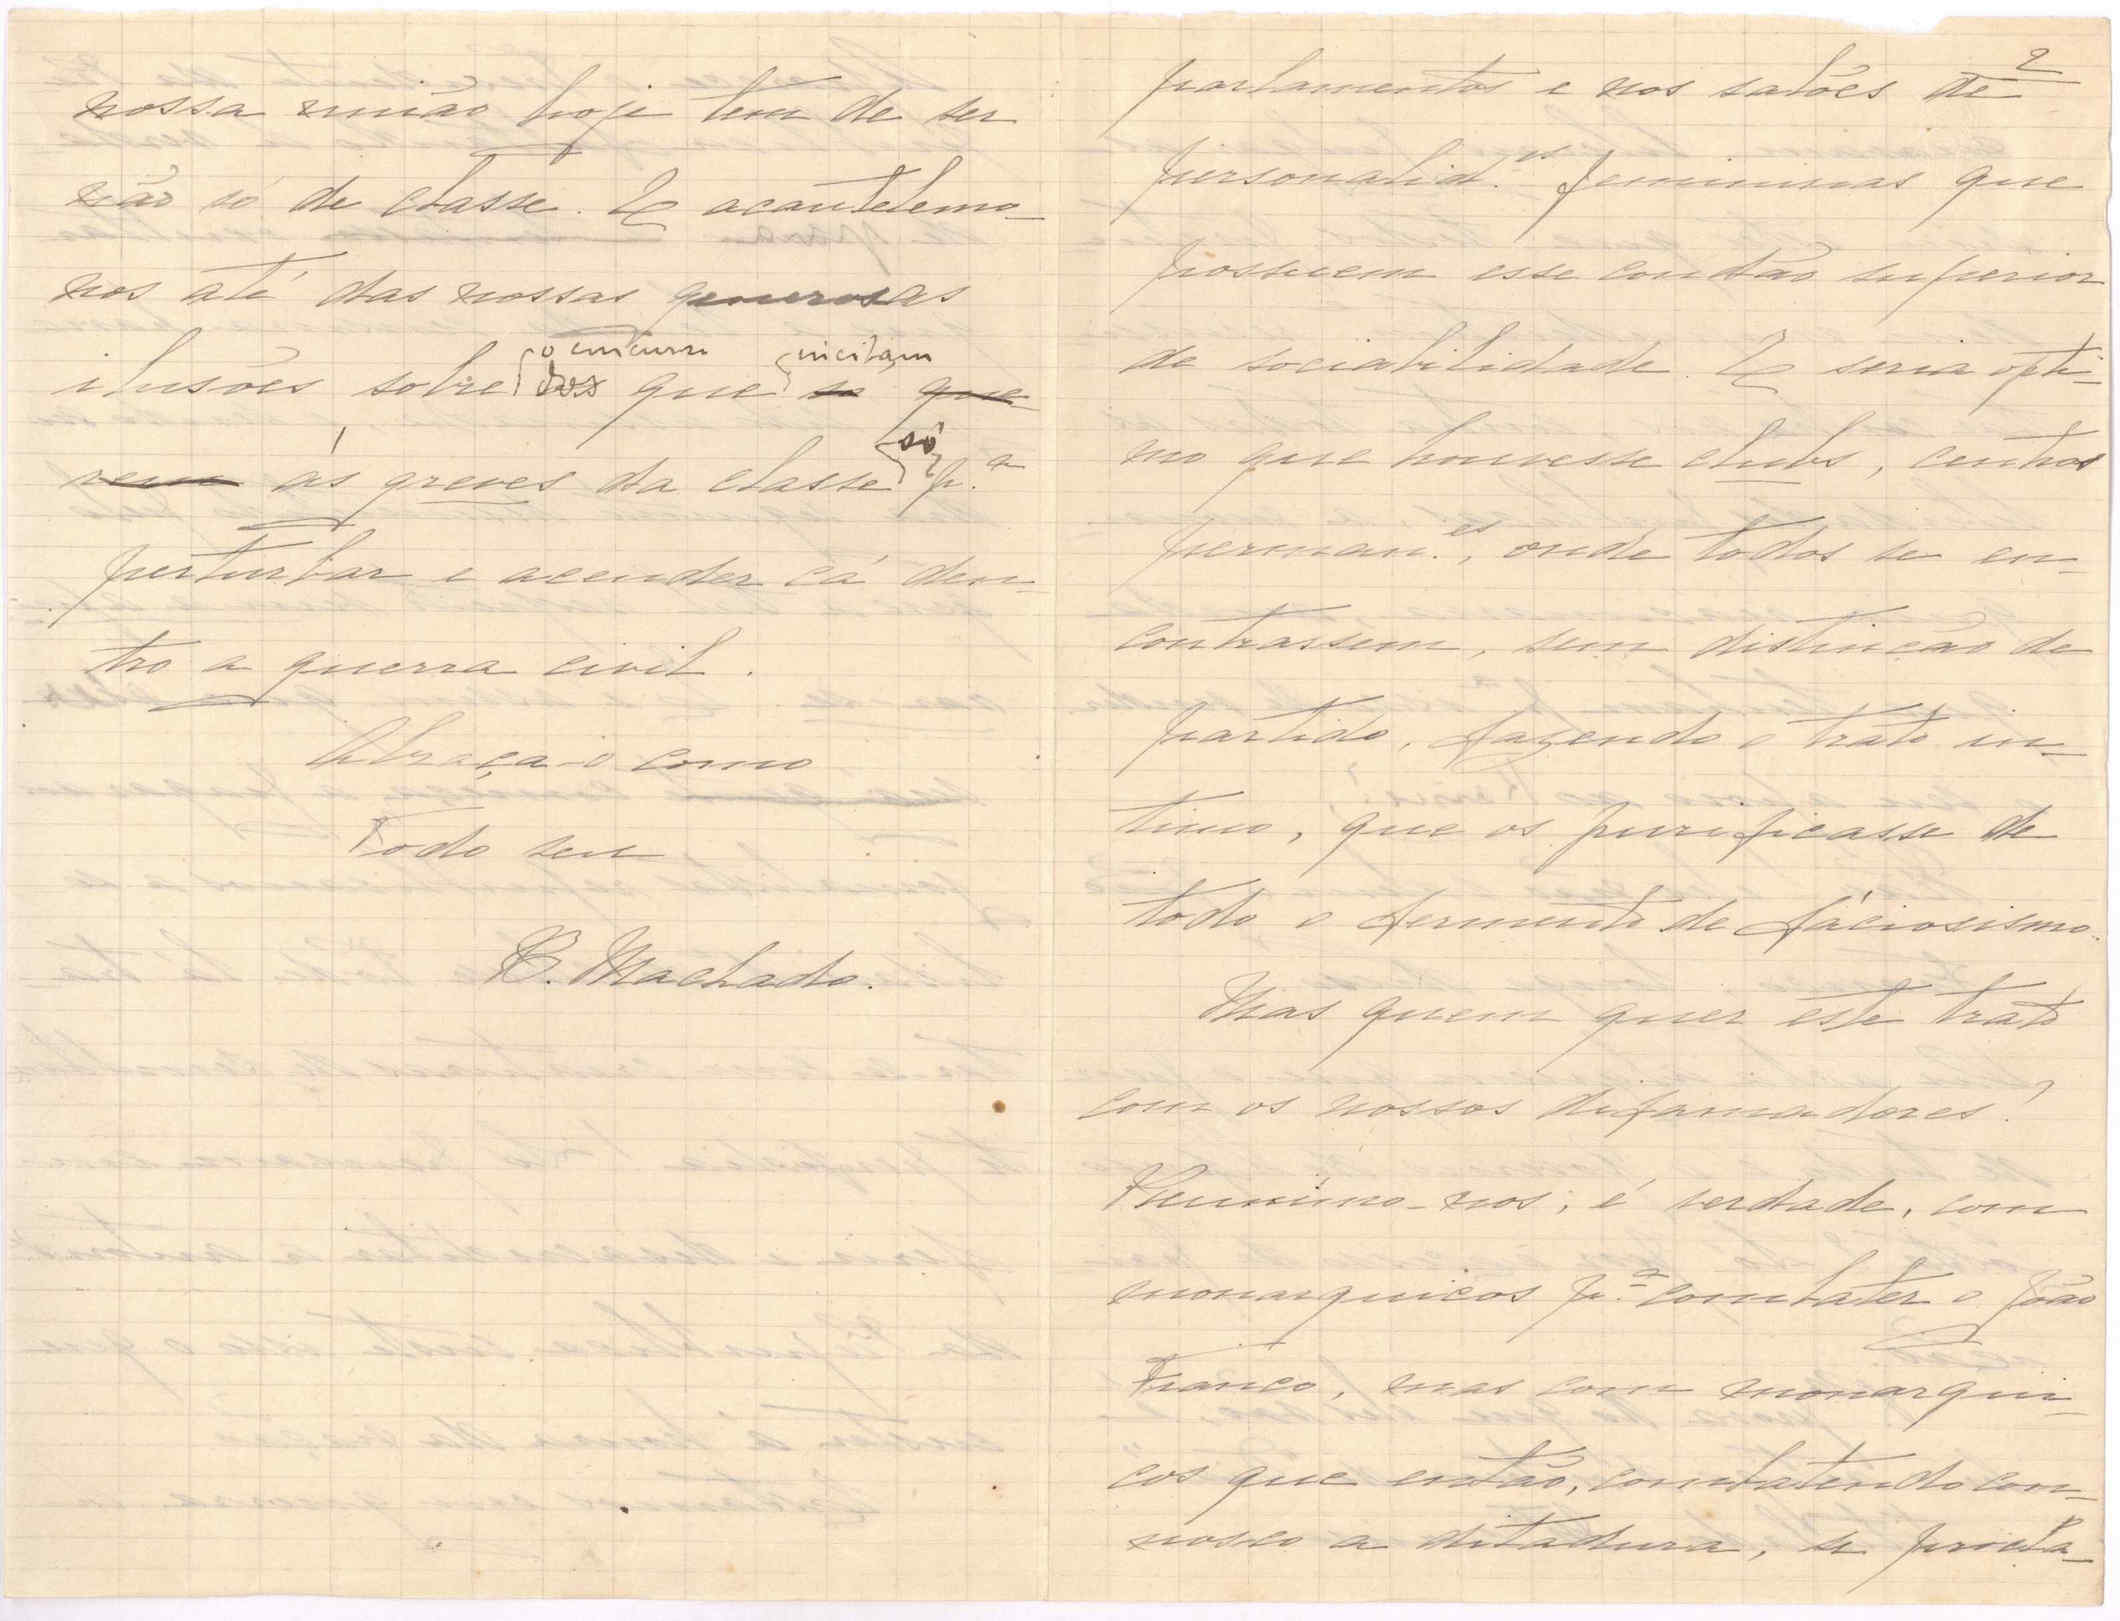 nossa união hoje tem de ser
não só de classe. E acautelemo-
nos até das nossas generosas
ilusões sobre dos que se que-
o concurso incitam
rem ás greves da classe só p.ª
perturbar e acender cá den-
tro a guerra civil.
Abraça-o como
Todo seu
B. Machado.
2
parlamentos e nos salões de
personalid.es femininas que
possuem esse condão superior
de sociabilidade. E seria opti-
mo que houvesse clubs, centros
perman.es, onde todos se en-
contrassem, sem distincão de
partido, fazendo o trato in-
timo, que os purificasse de
todo o fermento de fáciosismo.
Mas quem quer este trato
com os nossos difamadores?
Reunímo-nos, é verdade, com
monarquicos p.ª combater o João
Franco, mas com monarqui-
cos que então, combatendo com-
nosco a ditadura, se procla-